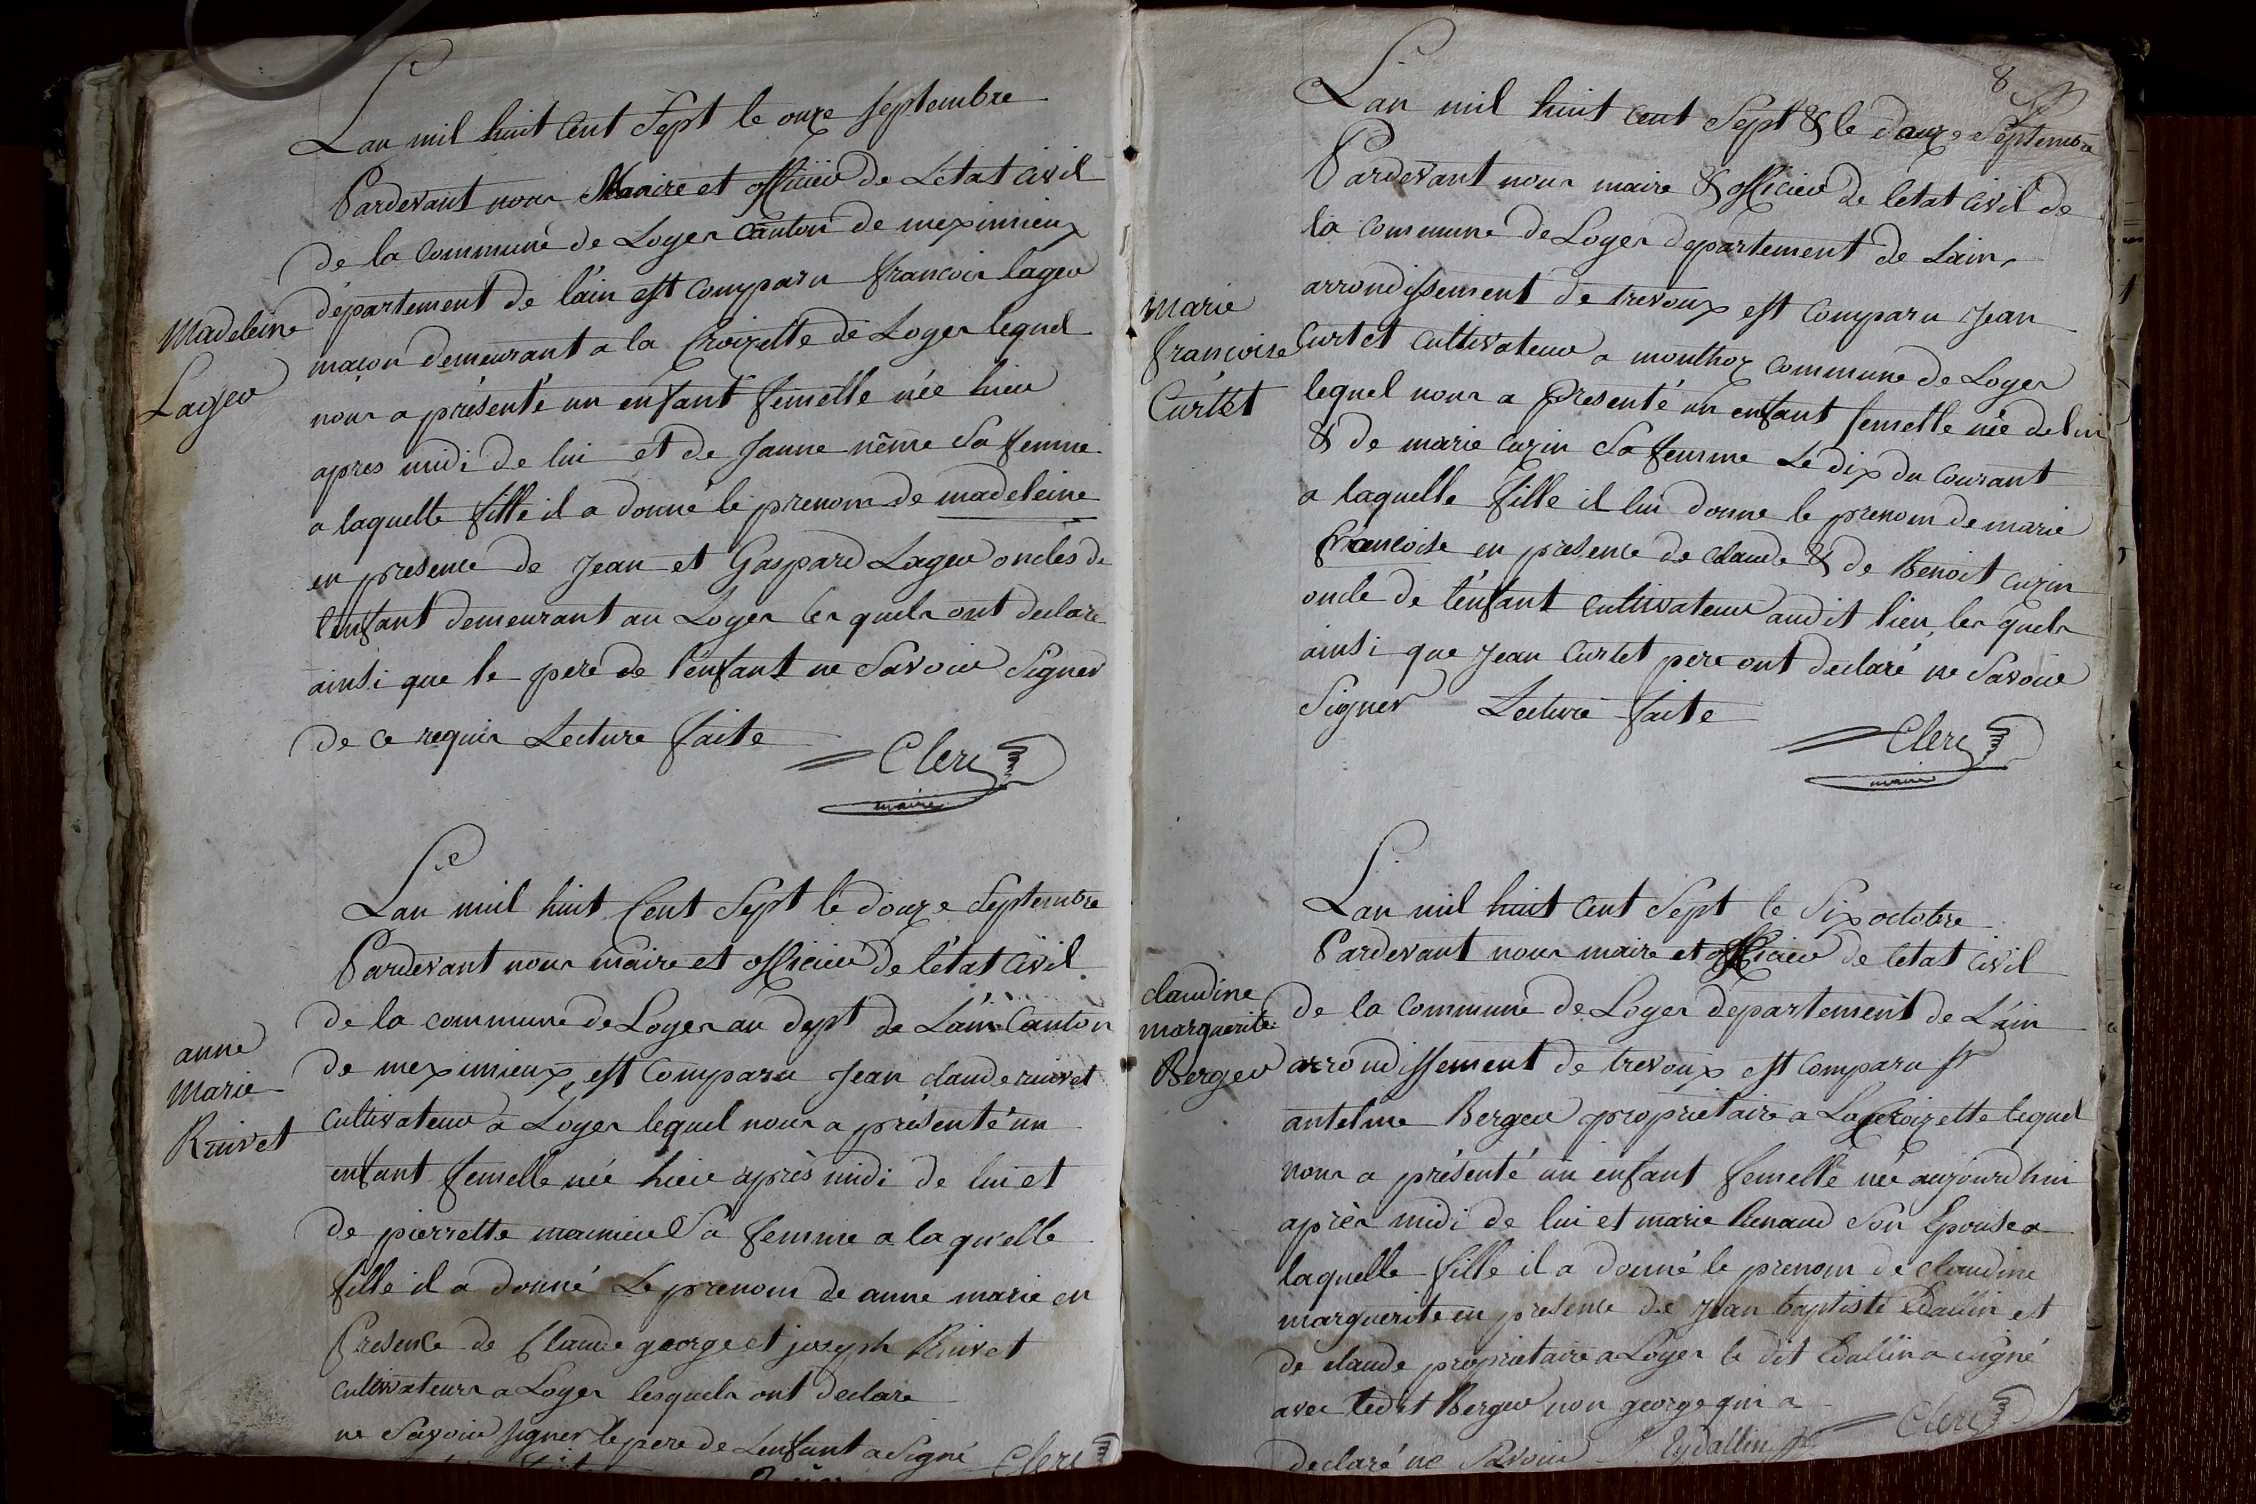 Lan mil huit Cent Sept le onze septembre
Pardevant nous Maire et officier de Letat Civil
de la Commune de Loyes Canton de meximieux
departement de l'ain est Comparu francois lager
Madeleine
maçon demeurant a la Croizette de Loyes lequel
Lager
nous a présenté un enfant femelle née hier
apres midi de lui et de Janne même Sa femme
a laquelle fille il a donné le prenom de madeleine
en presence de Jean et Gaspard Lager oncles de
l'enfant demeurant au Loyes les quels ont declaré
ainsi que le pere de l'enfant ne Savoir Signer
de ce requis Lecture faite
Clerc
maire
Lan mil huit Cent Sept le douze Septembre
Pardevant nous maire et officier de l'état Civil
de la commune de Loyes au dept de L'ain Canton
anne
marie
Ruivet
de meximieux, est Comparu Jean claude ruivet
Cultivateur a Loyes lequel nous a présenté un
enfant femelle née hier après midi de lui et
de pierrette Sa femme a laquelle
fille il a donné Le prenom de anne marie en
Presence de Claude george et joseph Ruivet
cultivateurs a Loyes lesquels ont declare
ne Savoir signer le pere de Lenfant a Signé
Clerc
8
Lan mil huit cent Sept & le douze Septembre
Pardevant nous maire & officier de letat Civil de
la Commune de Loyes departement de Lain,
arrondissement de trevoux est Comparu Jean
marie
francoise
Curtet
Curtet Cultivateur a monthoz Commune de Loyes
lequel nous a Présenté un enfant femelle née de lui
& de marie Cuzin Sa femme Le dix du Courant
a laquelle fille il lui donne le prenom de marie
francoise en presence de claude & de Benoit Cuzin
oncle de l'enfant cultivateur audit lieu, les quels
ainsi que Jean Curtet pere ont declaré ne Savoir
Signer Lecture faite
Clerc
maire
Lan mil huit Cent Sept le Six octobre
Pardevant nous maire et officier de letat Civil
claudine
marguerite
Berger
de la Commune de Loyes departement de L'ain
arrondissement de trevoux est Comparu Sr
antelme Berger proprietaire a La Croizette lequel
nous a présenté un enfant femelle née aujourd'hui
après midi de lui et marie Renaud Son Epouse a
laquelle fille il a donné le prenom de claudine
marguerite en presence de Jean baptiste Edallin et
de claude proprietaire a Loyes le dit Edallin a signé
avec ledit Berger non george qui a
declaré ne Savoir Eydallin Clerc